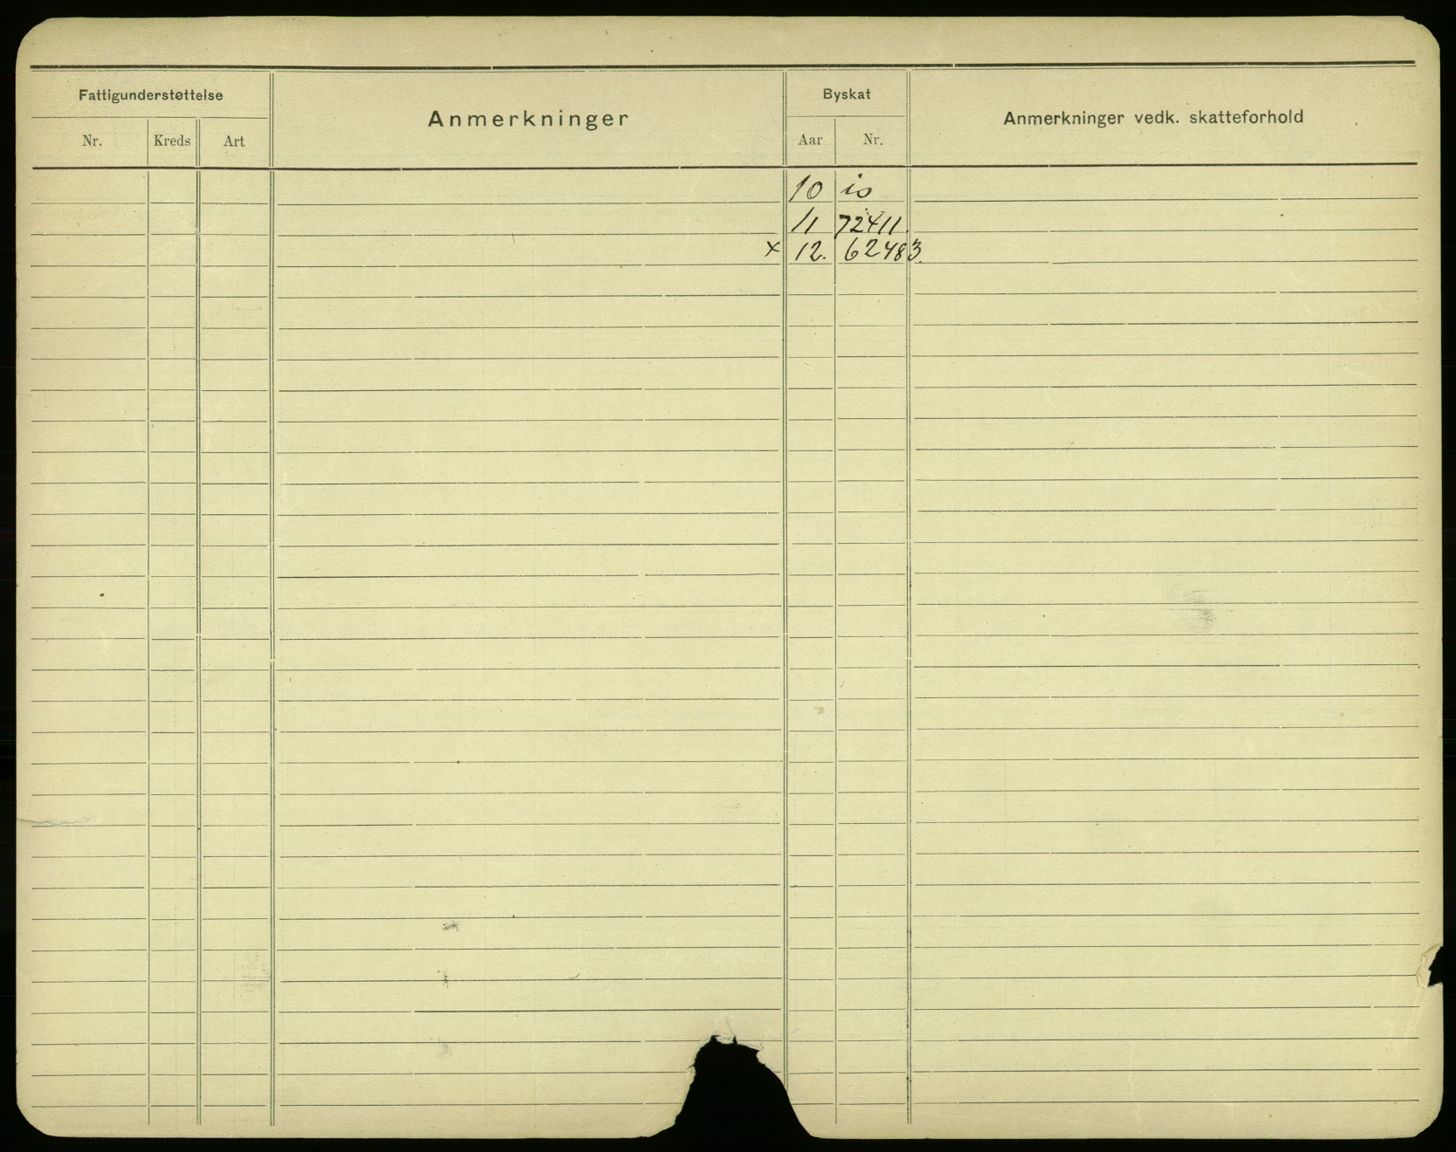 Fattigunderstøttelse
Anmerkninger
Byskat
Anmerkninger vedk. skatteforhold
Nr. Kreds Art
Aar Nr.
10 is
11 72411.
x 12. 62483.